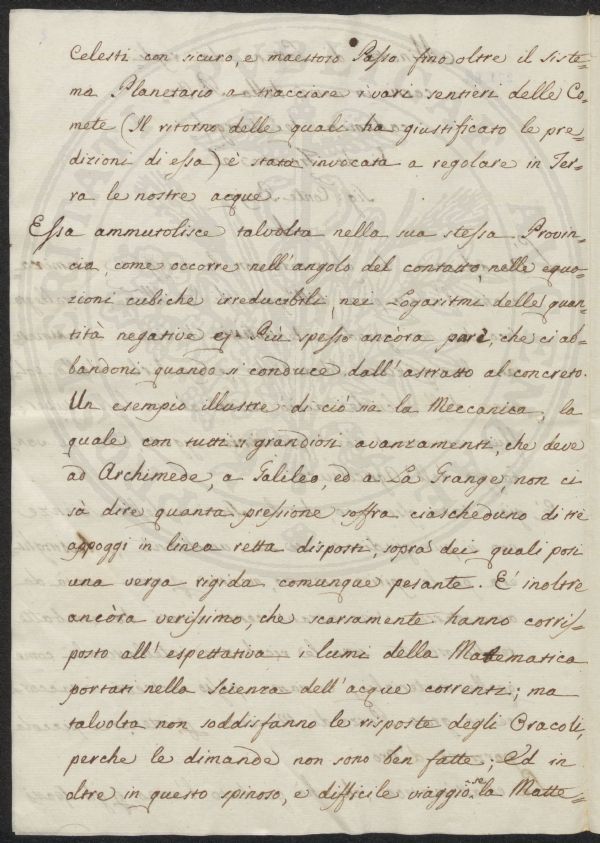 Celesti con sicuro, e maestoso Passo fino oltre il siste=
ma Planetario a tracciare i varj sentieri delle Co=
mete (Il ritorno delle quali ha giustificato le pre=
dizioni di essa) è stata invocata a regolare in Ter=
ra le nostre acque.
Essa ammutolisce talvolta nella sua stessa Provin=
cia, come occorre nell'angolo del contatto, nelle equa=
zioni cubiche irreducibili, nei Logaritmi delle quan=
tità negative e Più spesso ancòra pare, che ci ab=
bandoni quando si conduce dall'astratto al concreto.
Un esempio illustre di ciò nè la Meccanica, la
quale con tutti i grandiosi avanzamenti, che deve
ad Archimede, a Galileo, ed a La Grange, non ci
sà dire quanta pressione soffra ciascheduno di trè
appoggi in linea retta disposti, sopra dei quali posi
una verga rigida, comunque pesante. E' inoltre
ancòra verissimo, che scarsamente hanno corris=
posto all'espettativa i lumi della Matematica
portati nella Scienza dell'acque correnti; ma
talvolta non soddisfanno le risposte degli Oracoli,
perche le dimande non sono ben fatte; Ed in
oltre in questo spinoso, e difficile viaggio se la Matte=